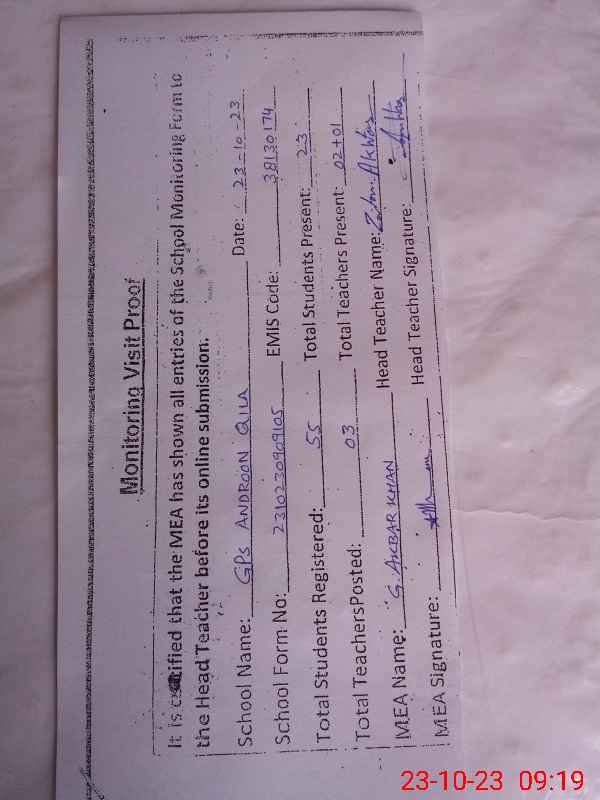 Monitoring Visit Proof
It is certified that the MEA has shown all entries of the School Monitoring Form to
the Head Teacher before its online submission.
School Name: GPS ANDROON QILA Date: 23-10-23
School Form No: 2310230909105 EMIS Code: 38130174
Total Students Registered: 55 Total Students Present: 23
Total TeachersPosted: 03 Total Teachers Present: 02+01
MEA Name: G. AKBAR KHAN Head Teacher Name: Akhtar
MEA Signature: Head Teacher Signature:
23-10-23 09:19